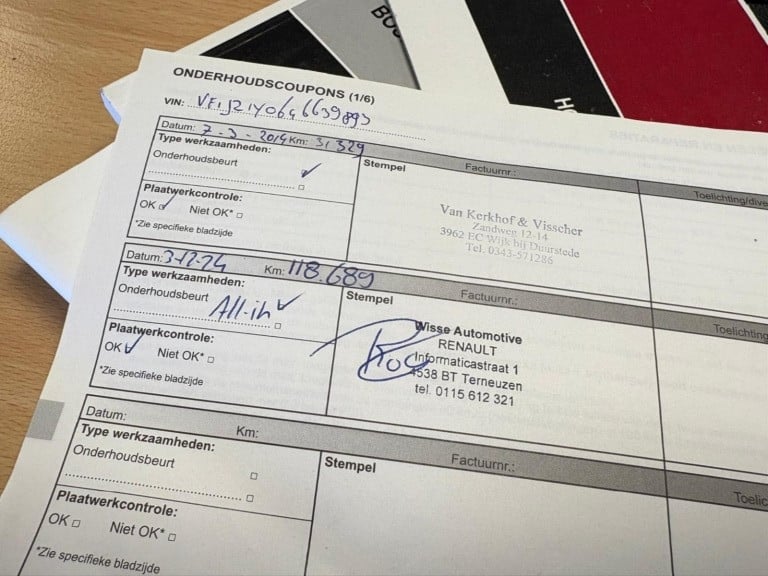 ONDERHOUDSCOUPONS (1/6)
VIN: VF1J21Y0646639893
Datum: 7-3-2014 Km: 31329
Type werkzaamheden:
Onderhoudsbeurt
Stempel
Factuurnr.:
Toelichting/dive
Plaatwerkcontrole:
OK Niet OK*
*Zie specifieke bladzijde
Van Kerkhof & Visscher
Zandweg 12-14
3962 EC Wijk bij Duurstede
Tel. 0343-571286
Datum: 3-12-24 Km: 118.689
Type werkzaamheden:
Onderhoudsbeurt All-in
Stempel
Factuurnr.:
Toelichting
Plaatwerkcontrole:
OK Niet OK*
*Zie specifieke bladzijde
Wisse Automotive
RENAULT
Informaticastraat 1
4538 BT Terneuzen
tel. 0115 612 321
Datum: Km:
Type werkzaamheden:
Onderhoudsbeurt
Stempel
Factuurnr.:
Toelic
Plaatwerkcontrole:
OK Niet OK*
*Zie specifieke bladzijde